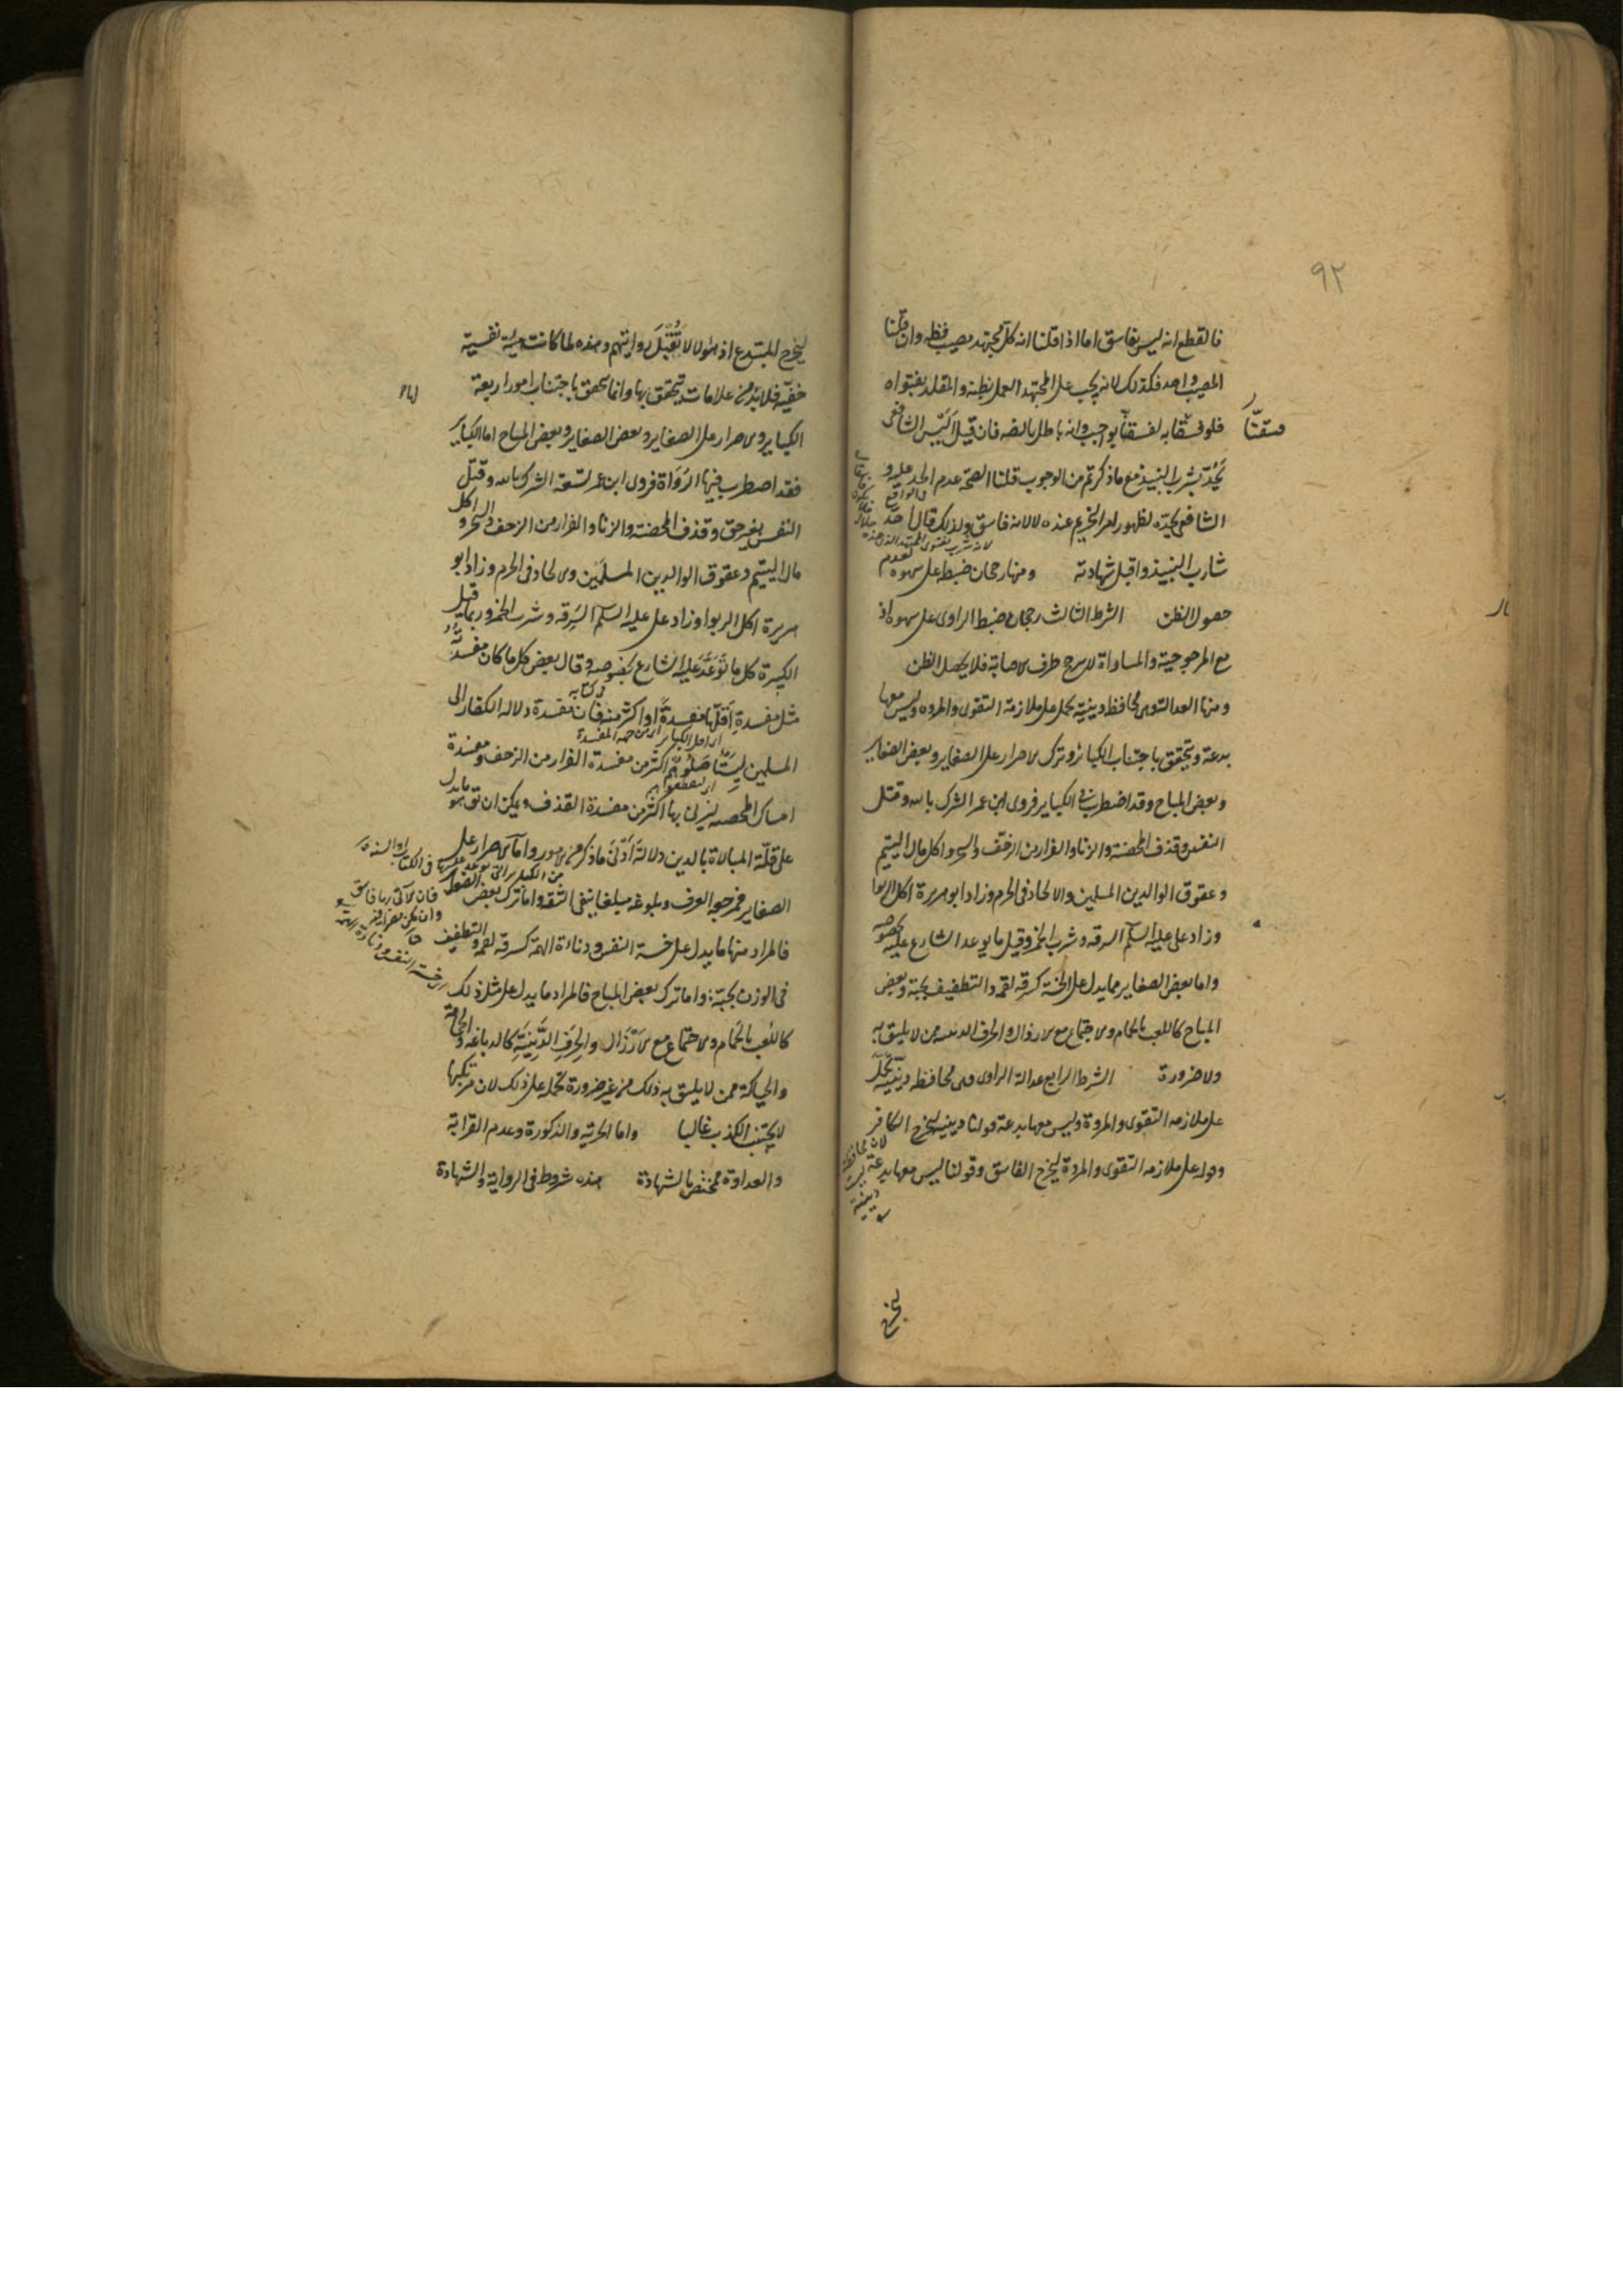 ٩٢
فالقطع انه ليس بفاسق اما اذا قلنا انه كل مجتهد مصيب فظه وان قلنا
المصيب واحد فكذلك لانه يجب على المجتهد العمل بظنه والمقلد بفتواه
فلو فسقنا به لفسقنا بواجب وانه باطل بالضه فان قيل اليس الشافعى
يحد بشرب النبيذ مع ماذكرتم من الوجوب قلنا الصحة عدم الحد عليه و
الشافعى يحده لظهور امر التحريم عنده لا لانه فاسق ولذلك قال احد
شارب النبيذ واقبل شهادته ومنها رجحان ضبط على سهوه لعدم
حصول الظن الشرط الثالث رجحان ضبط الراوى على سهوه اذ
مع المرجوحية والمساواة لا يرجح طرف الاصابة فلا يحصل الظن
ومنها العدالة وهى محافظة دينية تحمل على ملازمة التقوى والمروه وليس معها
بدعة وتتحقق باجتناب الكبائر وترك الاصرار على الصغاير وبعض الصغاير
وبعض المباح وقد اضطرب فى الكباير فروى ابن عمر الشرك بالله وقتل
النفس وقذف المحصنة والزنا والفرار من الزحف والسحر واكل مال اليتيم
وعقوق الوالدين المسلمين والالحاد فى الحرم وزاد ابو هريرة اكل الربوا
وزاد على عليه السلم السرقه وشرب الخمر وقيل ما يوعد الشارع عليه بخصوصه
واما بعض الصغاير مما يدل على الخسة كسرقه لقمه والتطفيف بحبة وبعض
المباح كاللعب بالحمام والاجتماع مع الارذال والحرف الدنيه ممن لا يليق به
ولا ضرورة الشرط الرابع عدالة الراوى وهى محافظه دينية تحمل
على ملازمه التقوى والمروة وليس معها بدعة قولنا دينيه ليخرج الكافر
وقوله على ملازمه التقوى والمروة ليخرج الفاسق وقولنا ليس معها بدعة
ليخرج
ليخرج المبتدع اذ هؤلاء لا تقبل روايتهم وهذه لما كانت هيئة نفسية
خفية فلا بد من علامات تتحقق بها وانما يتحقق باجتناب امور اربعة
الكباير والاصرار على الصغاير وبعض الصغاير وبعض المباح اما الكباير
فقد اضطرب فيها الرواة فروى ابن عمر تسعة الشرك بالله وقتل
النفس بغير حق وقذف المحصنة والزنا والفرار من الزحف والسحر واكل
مال اليتيم وعقوق الوالدين المسلمين والالحاد فى الحرم وزاد ابو
هريرة اكل الربوا وزاد على عليه السلم السرقه وشرب الخمر وربما قيل
الكبيرة كل ما توعد عليه الشارع بخصوصه وقال بعض كل ما كان مفسدته
مثل مفسدة اقلها مفسدة او اكثر منه فان مفسدة دلاله الكفار الى
المسلمين ليستاصلوهم اكثر من مفسدة الفرار من الزحف ومفسدة
امساك المحصنه ليزنى بها اكثر من مفسدة القذف ويمكن ان يق هو ما يدل
على قلة المبالاة بالدين دلالة ادنى ماذكر من الامور واما الاصرار على
الصغاير فمرجعه العرف وبلوغه مبلغا ينفى الثقه واما ترك بعض الصغاير
فالمراد منها ما يدل على خسة النفس ودناءة الهمة كسرقه لقمه والتطفيف
فى الوزن بحبة واما ترك بعض المباح فالمراد ما يدل على مثل ذلك
كاللعب بالحمام والاجتماع مع الارذال والحرف الدنية كالدباغه والحجامة
والحياكة ممن لا يليق به ذلك من غير ضرورة تحمله على ذلك لان مرتكبها
لا يجتنب الكذب غالبا واما الحرية والذكورة وعدم القرابة
والعداوة فمختص بالشهادة هذه شروط فى الرواية والشهادة